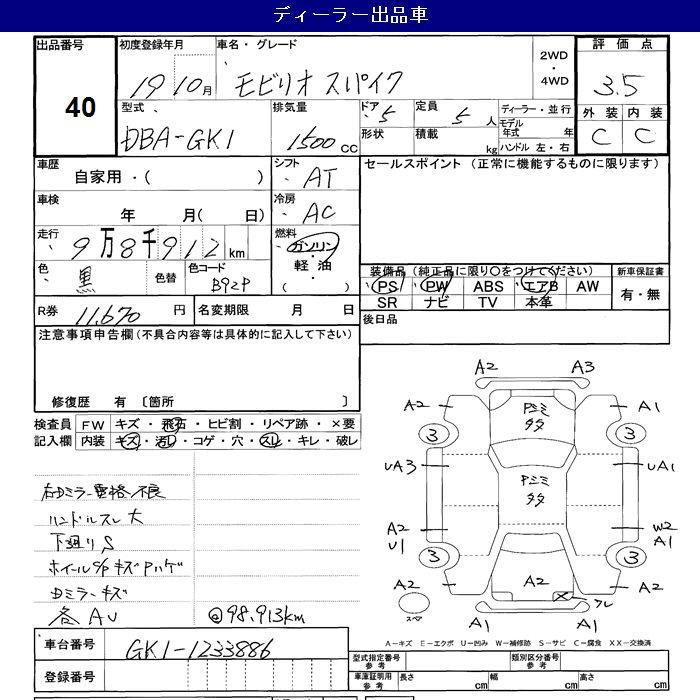 ディーラー出品車
出品番号 40
初度登録年月 19 10月
車名・グレード モビリオ スパイク
2WD・4WD
評価点 3.5
外装 C 内装 C
型式 DBA-GK1
排気量 1500 CC
ドア・形状 5
定員 5人
積載 kg
ディーラー・並行
モデル年式 年
ハンドル 左・右
車歴 自家用・( )
シフト AT
車検 年 月( 日)
冷房 AC
走行 9万8千912km
燃料 ガソリン・軽油・( )
色 黒
色替
色コード B92P
R券 11,670円
名変期限 月 日
セールスポイント (正常に機能するものに限ります)
装備品 (純正品に限り○をつけてください)
PS PW ABS エアB AW
SR ナビ TV 本革
新車保証書
有・無
後日品
注意事項申告欄(不具合内容等は具体的に記入して下さい)
修復歴 有 〔箇所 〕
検査員記入欄
FW キズ・飛石・ヒビ割・リペア跡・×要
内装 キズ・汚レ・コゲ・穴・スレ・キレ・破レ
右Dミラー電格不良
ハンドルスレ大
下廻りS
ホイールC/PキズPハゲ
Dミラーキズ
各AU
@98.913km
A2 A3
A2 A1
Pミミ
タタ
3 3
UA3 UA1
Pミミ
タタ
A2 W2
U1 A1
3 3
A2 A2 A2
スペア
ワレ
A1 A1
A－キズ E－エクボ U－凹み W－補修跡 S－サビ C－腐食 XX－交換済
車台番号 GK1-1233886
登録番号
型式指定番号 参考
類別区分番号 参考
車庫証明用 参考
長さ cm 幅 cm 高さ cm